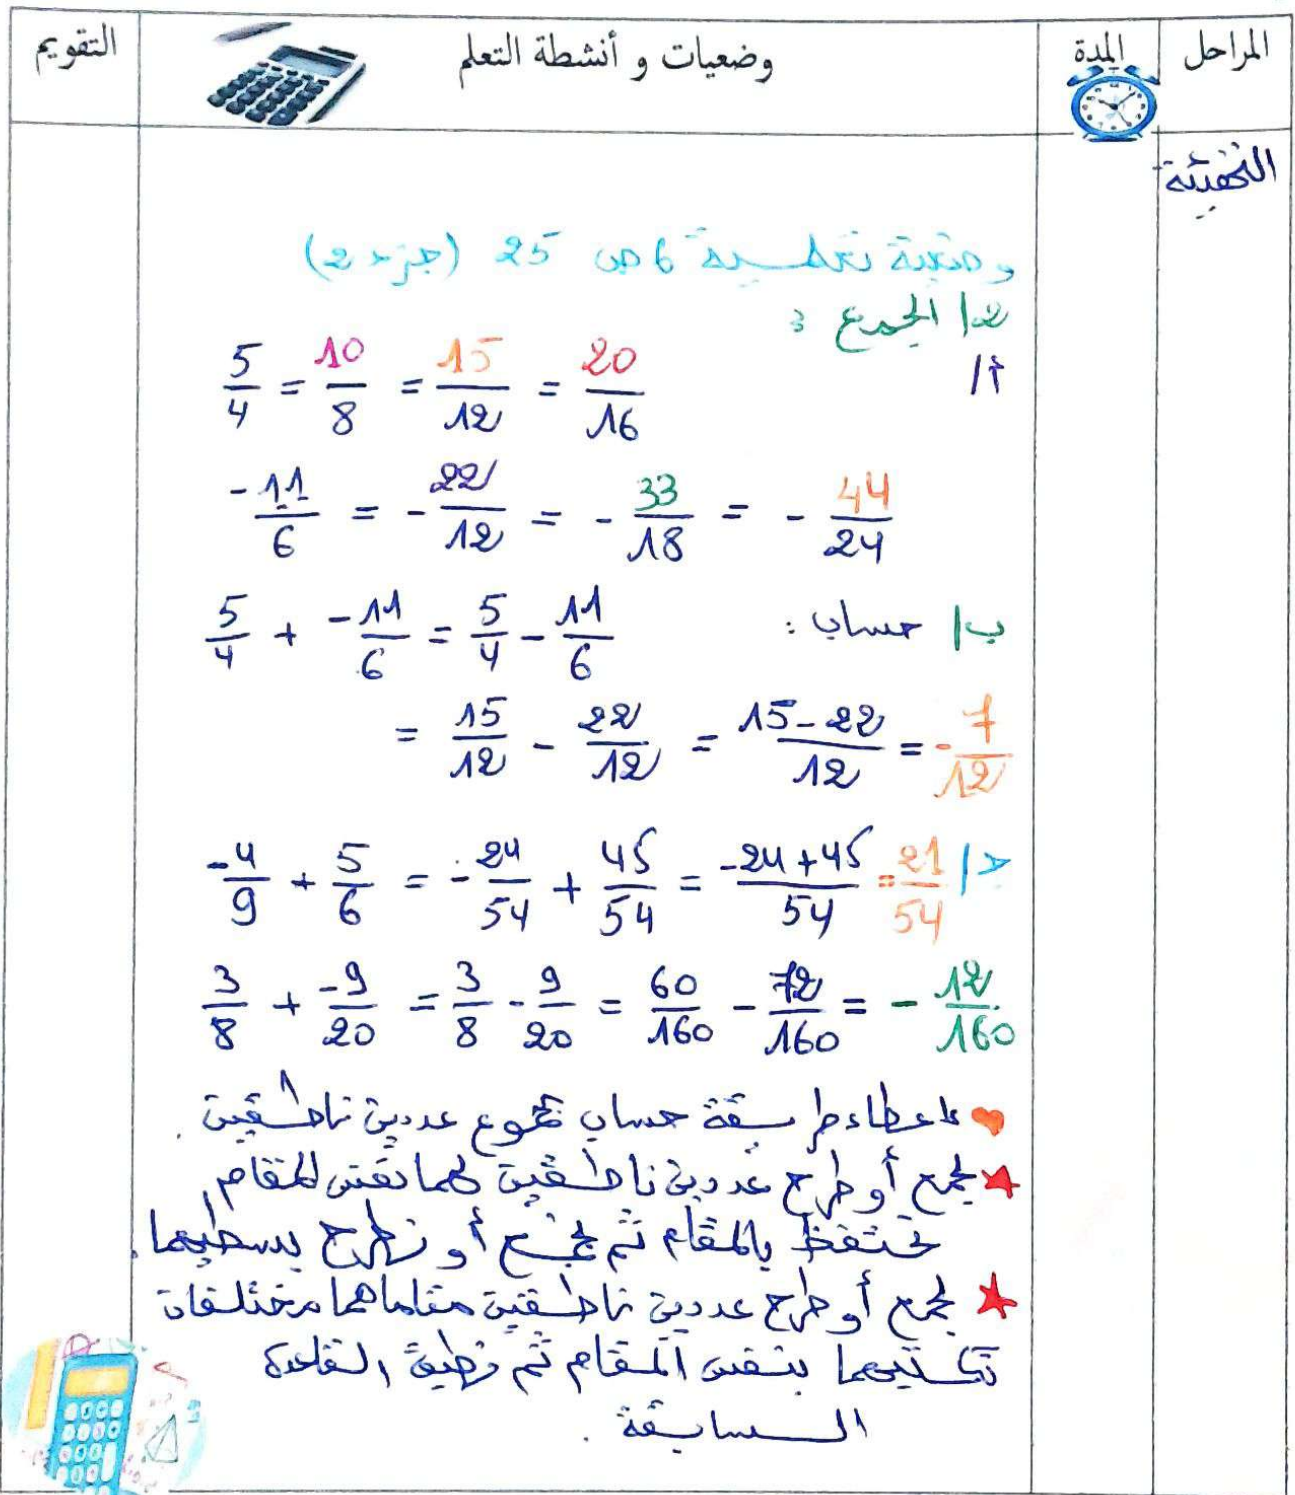 المراحل المدة وضعيات و أنشطة التعلم التقويم
التهيئة
وضعية تعلمية 6 ص 25 (جزء 2)
2/ الجمع :
أ/
5/4 = 10/8 = 15/12 = 20/16
-11/6 = -22/12 = -33/18 = -44/24
ب/ حساب :
5/4 + -11/6 = 5/4 - 11/6
= 15/12 - 22/12 = 15-22/12 = -7/12
ج/
-4/9 + 5/6 = -24/54 + 45/54 = -24+45/54 = 21/54
3/8 + -9/20 = 3/8 - 9/20 = 60/160 - 72/160 = -12/160
اعطاء طريقة حساب مجموع عددين ناطقين .
لجمع أو طرح عددين ناطقين لهما نفس المقام
نحتفظ بالمقام ثم نجمع أو نطرح بسطيهما .
لجمع أو طرح عددين ناطقين مقاماهما مختلفان
نكتبهما بنفس المقام ثم نطبق القاعدة
السابقة .